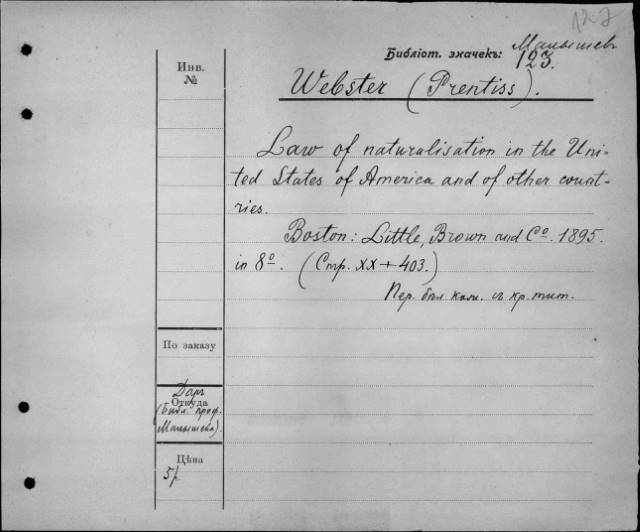 122
Малышев
Библіот. значекъ: 123.
Инв.
№
Webster (Prentiss).
Law of naturalisation in the Uni-
ted States of America and of other count-
ries.
Boston: Little, Brown and Cº. 1895.
in 8º. (Стр. XX + 403.)
Пер. бѣл. кол. съ кр. тит.
По заказу
Даръ
Откуда
(Библ. проф.
Малышева).
Цѣна
5 р.